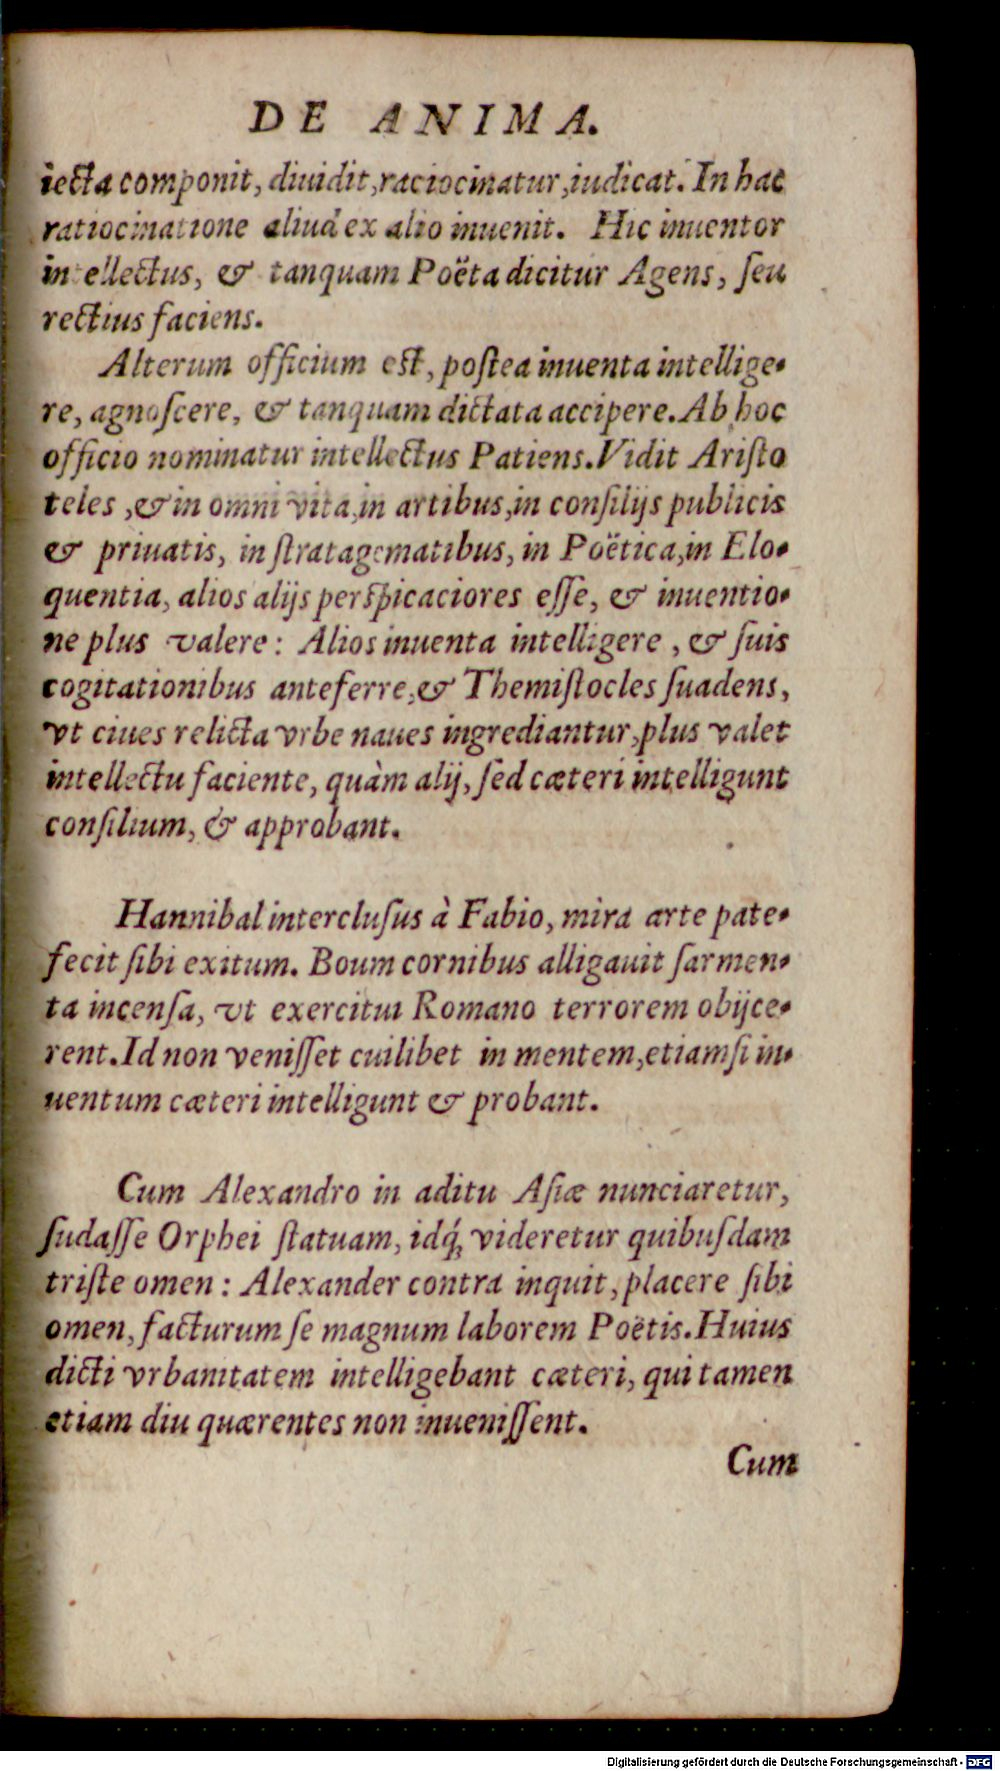 DE ANIMA.
iecta componit, diuidit, raciocinatur, iudicat. In hac
ratiocinatione aliud ex alio inuenit. Hic inuentor
intellectus, & tanquam Poëta dicitur Agens, ſeu
rectius faciens.
Alterum officium eſt, poſtea inuenta intellige-
re, agnoſcere, & tanquam dictata accipere. Ab hoc
officio nominatur intellectus Patiens. Vidit Ariſto
teles, & in omni vita, in artibus, in conſilijs publicis
& priuatis, in ſtratagematibus, in Poëtica, in Elo-
quentia, alios alijs perſpicaciores eſſe, & inuentio-
ne plus valere: Alios inuenta intelligere, & ſuis
cogitationibus anteferre, & Themiſtocles ſuadens,
vt ciues relicta vrbe naues ingrediantur, plus valet
intellectu faciente, quàm alij, ſed cæteri intelligunt
conſilium, & approbant.
Hannibal intercluſus à Fabio, mira arte pate-
fecit ſibi exitum. Boum cornibus alligauit ſarmen-
ta incenſa, vt exercitui Romano terrorem obijce-
rent. Id non veniſſet cuilibet in mentem, etiamſi in-
uentum cæteri intelligunt & probant.
Cum Alexandro in aditu Aſiæ nunciaretur,
ſudaſſe Orphei ſtatuam, idq́; videretur quibuſdam
triſte omen: Alexander contra inquit, placere ſibi
omen, facturum ſe magnum laborem Poëtis. Huius
dicti vrbanitatem intelligebant cæteri, qui tamen
etiam diu quærentes non inueniſſent.
Cum
Digitalisierung gefördert durch die Deutsche Forschungsgemeinschaft - DFG